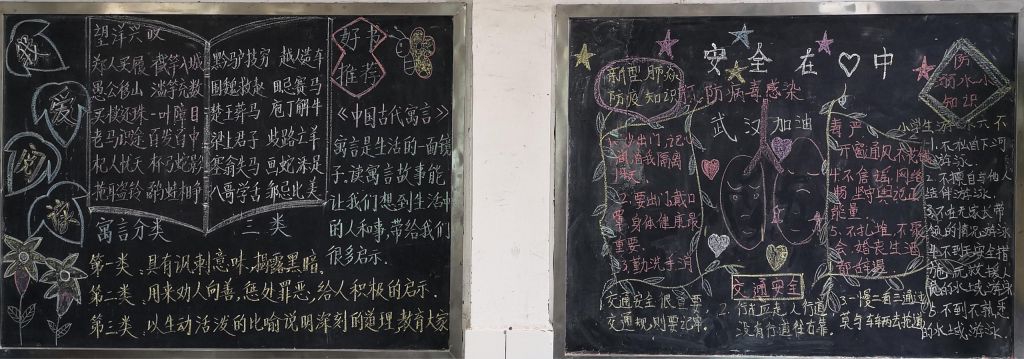 望洋兴叹
郑人买履 截竿入城 黔驴技穷 越人造车
愚公移山 滥竽充数 围魏救赵 田忌赛马
买椟还珠 一叶障目 楚王葬马 庖丁解牛
老马识途 百发百中 梁上君子 歧路亡羊
杞人忧天 杯弓蛇影 塞翁失马 画蛇添足
掩耳盗铃 鹬蚌相争 八哥学舌 邹忌比美
寓言分类 三类
好书
推荐
《中国古代寓言》
寓言是生活的一面镜
子,读寓言故事能
让我们想到生活中
的人和事,带给我们
很多启示.
爱
第一类、具有讽刺意味,揭露黑暗.
第二类、用来劝人向善,惩处罪恶,给人积极的启示.
第三类、以生动活泼的比喻说明深刻的道理,教育大家
安全在中
新型肺炎
防疫知识
防病毒感染
武汉加油
1.少出门,记
自我隔离
2.要出门戴口
罩,身体健康最
重要.
3.勤洗手消
毒严
开窗通风不
4.不信谣,网络
5.不扎堆,不聚
会,婚丧生酒
都辞掉
交通安全
1.交通安全很重要
交通规则要记牢.
2.行走应走人行道
没有行道往右靠.
3.一慢二看三通过
莫与车辆去抢道
防
溺水小
知识
小学生
1.不私自下河
游泳.
2.不擅自与他人
结伴游泳.
3.不在无家长带
领的情况游泳
4.不到无安全措
施、无救援人
员的水域游泳
5.不到不熟悉
的水域游泳.